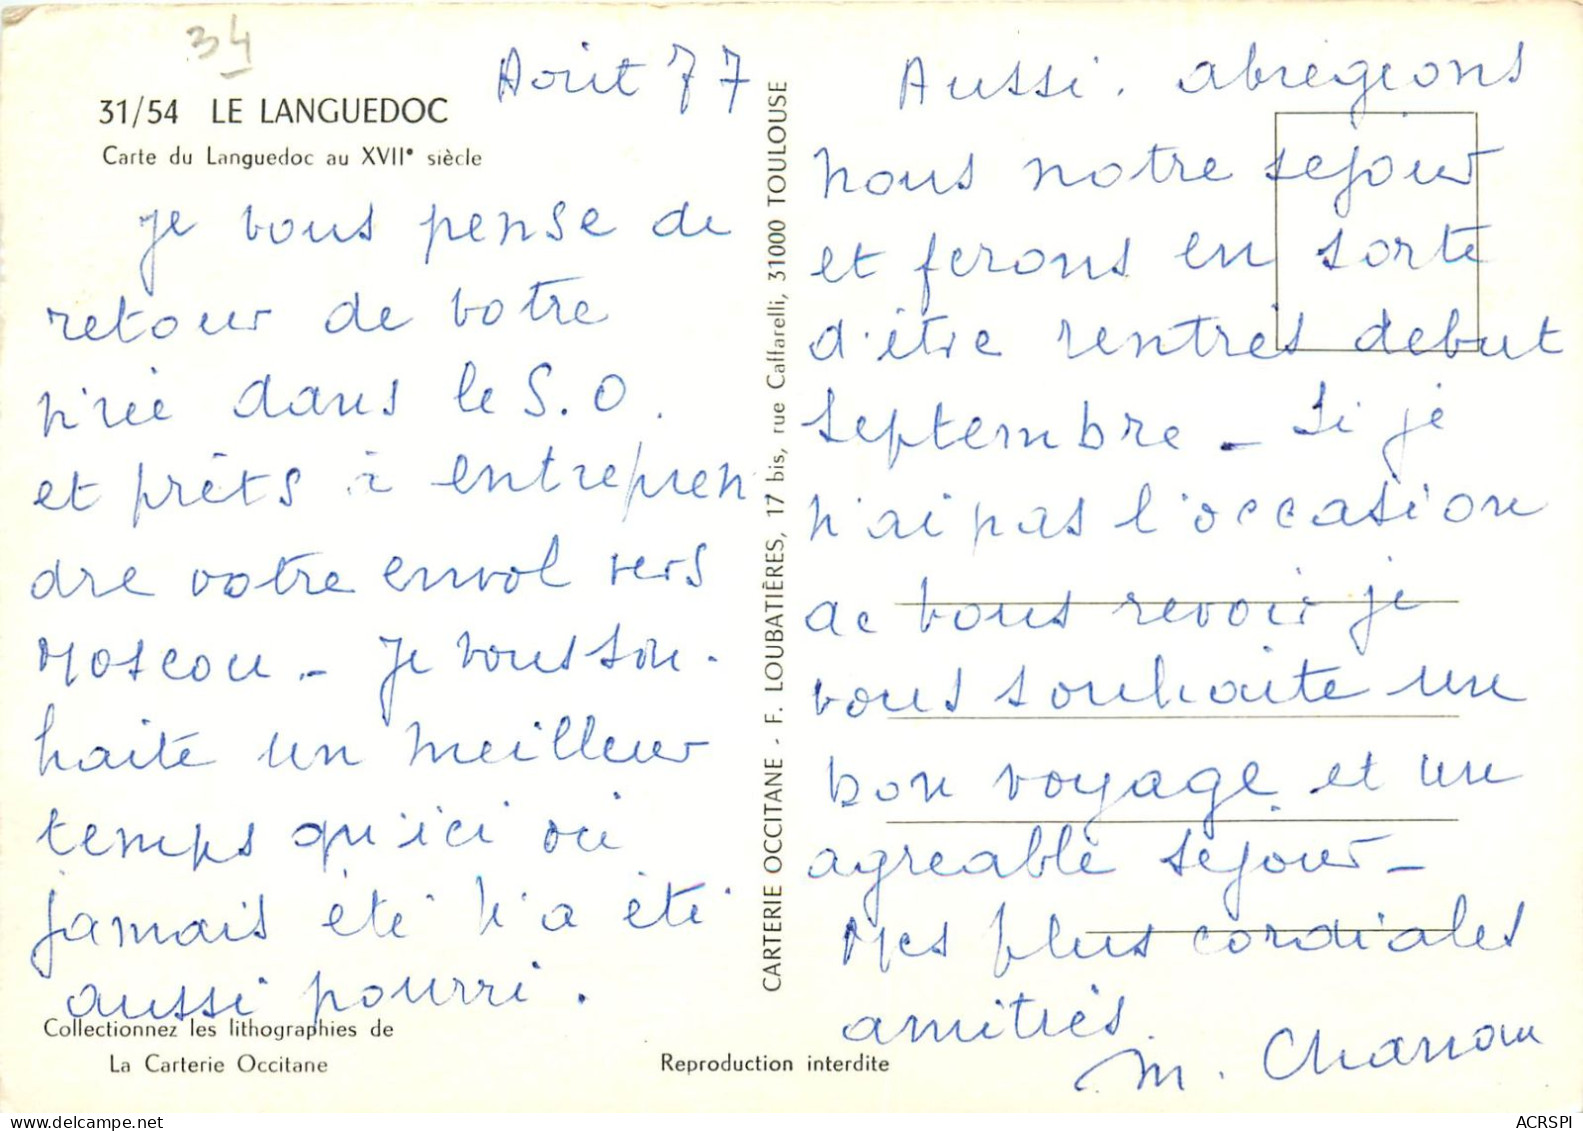 34
Août 77
31/54 LE LANGUEDOC
Carte du Languedoc au XVIIe siècle
Je vous pense de
retour de votre
virée dans le S.O.
et prêts à entrepren
dre votre envol vers
Moscou _ Je vous sou-
haite un meilleur
temps qu'ici où
jamais été n'a été
aussi pourri.
Collectionnez les lithographies de
La Carterie Occitane
CARTERIE OCCITANE - F. LOUBATIÈRES, 17 bis, rue Caffarelli, 31000 TOULOUSE
Reproduction interdite
Aussi. abrégeons
nous notre séjour
et ferons en sorte
d'être rentrés début
Septembre _ Si je
n'ai pas l'occasion
de vous revoir je
vous souhaite un
bon voyage et un
agréable séjour _
Mes plus cordiales
amitiés.
M.
ACRSPI